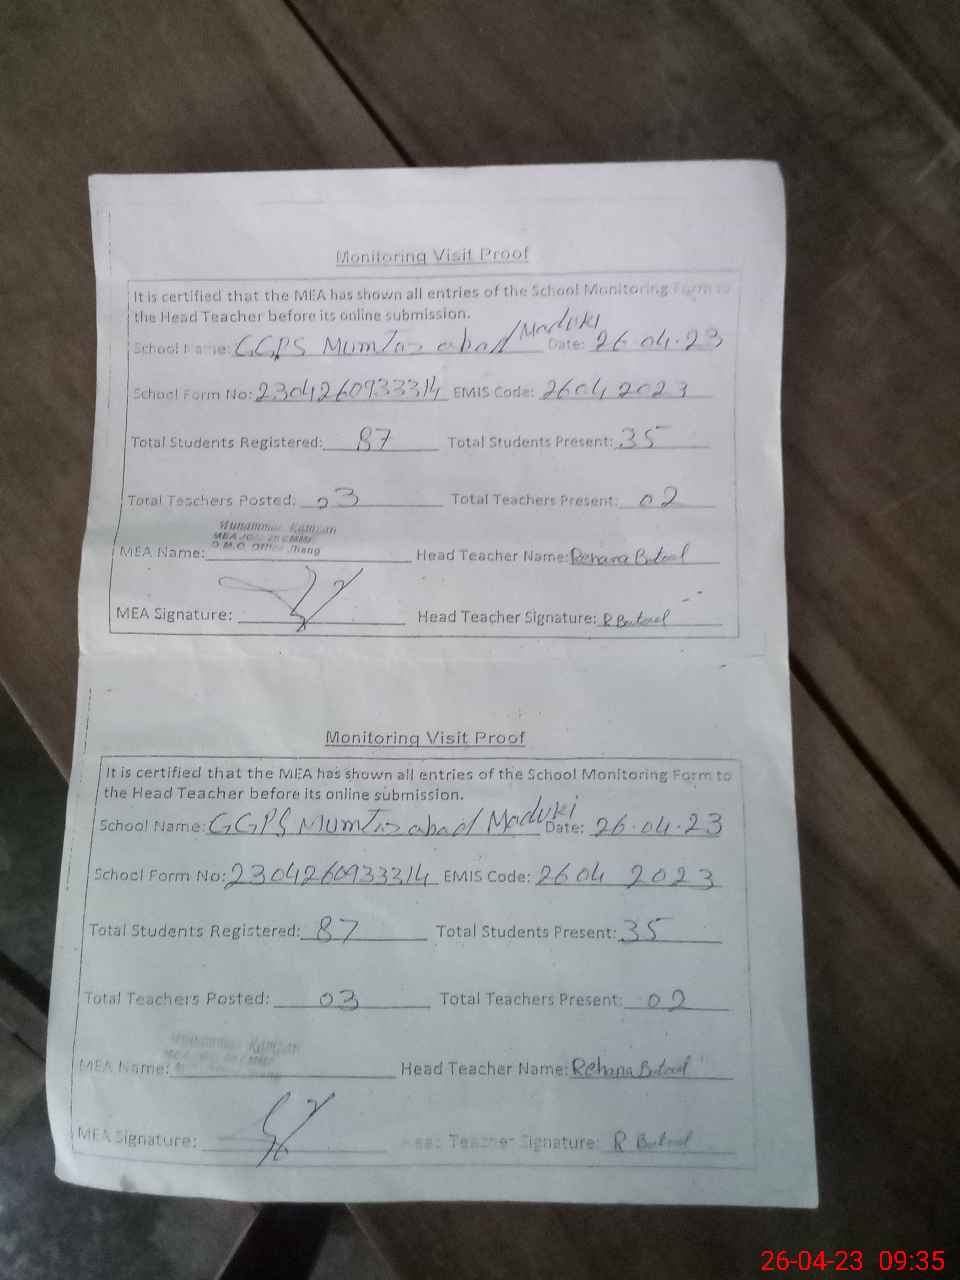 Monitoring Visit Proof
It is certified that the MEA has shown all entries of the School Monitoring Form to
the Head Teacher before its online submission.
School Name: GGPS Mumtaz abad Maduki Date: 26.04.23
School Form No: 2304260933314 EMIS Code: 2604 2023
Total Students Registered: 87 Total Students Present: 35
Total Teachers Posted: 03 Total Teachers Present: 02
D.M.O. Office Jhang
MEA Name: Head Teacher Name: Rehana Batool
MEA Signature: Head Teacher Signature: R Batool
Monitoring Visit Proof
It is certified that the MEA has shown all entries of the School Monitoring Form to
the Head Teacher before its online submission.
School Name: GGPS Mumtaz abad Maduki Date: 26.04.23
School Form No: 2304260933314 EMIS Code: 2604 2023
Total Students Registered: 87 Total Students Present: 35
Total Teachers Posted: 03 Total Teachers Present: 02
MEA Name: Head Teacher Name: Rehana Batool
MEA Signature: Head Teacher Signature: R Batool
26-04-23 09:35